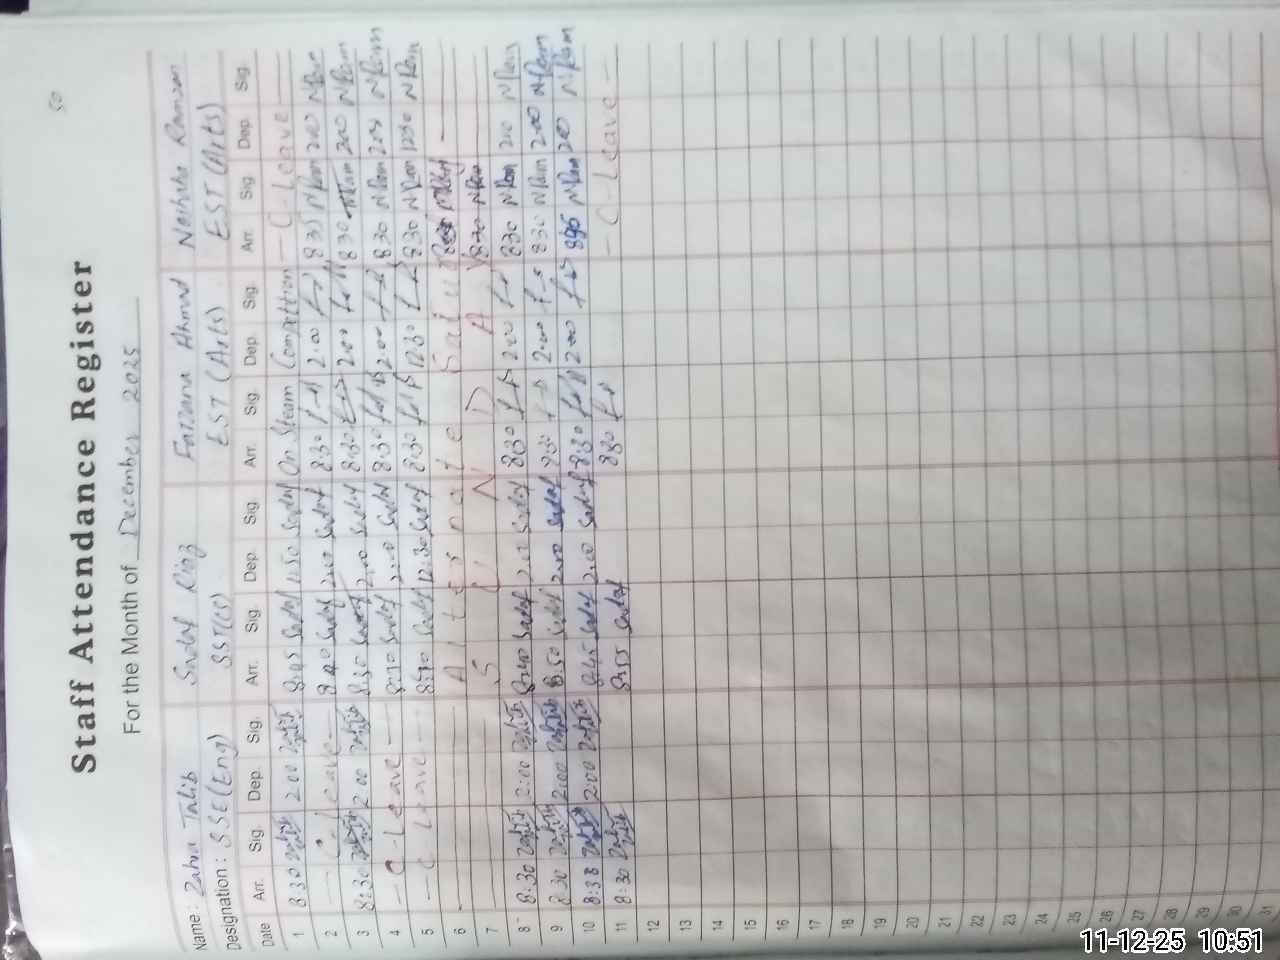 50
Staff Attendance Register
For the Month of December 2025
Name: Zahra Talib Sadaf Riaz Farzana Ahmad Ramzan
Designation: SSE (Eng) SST(CS) EST (Arts) EST (Arts)
Date Arr. Sig. Dep. Sig. Arr. Sig. Dep. Sig. Arr. Sig. Dep. Sig. Arr. Sig Dep. Sig.
1 8:30 2:00 8:45 Sadaf 1:50 Sadaf On Steam Compettion — C-Leave —
2 — C-Leave — 8:40 Sadaf 2:00 Sadaf 8:30 2:00 8:35 N Ram 200 N Ram
3 8:30 2:00 8:30 Sadaf 2:00 Sadaf 8:30 2:00 830 200 N Ram
4 — C-Leave — 8:30 Sadaf 2:00 Sadaf 8:30 2:00 830 N Ram N Ram
5 — C-Leave — 8:30 Sadaf 12:30 Sadaf 8:30 12:30 830 N Ram 1230 N Ram
6 Alternate Satur
7 S U N D A Y
8 8:30 2:00 8:40 Sadaf 2:00 Sadaf 8:30 2:00 830 N Ram 200 N Ram
9 8:30 2:00 8:50 Sadaf 2:00 Sadaf 2:00 830 N Ram 200 N Ram
10 8:38 2:00 8:45 Sadaf 2:00 Sadaf 8:30 2:00 N Ram 200 N Ram
11 8:30 8:55 Sadaf 8:30 — C-Leave —
12
13
14
15
16
17
18
19
20
21
22
23
24
25
26
27
28
29
30
31
11-12-25 10:51